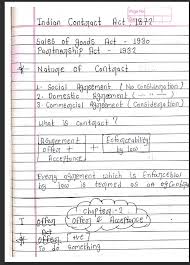 Page No
Date
Indian Contract Act - 1872
Sales of goods Act - 1930
Partnership Act - 1932
* Nature of Contract
1. Social Agreement (No Consideration)
2. Domestic Agreement ( - " - )
3. Commercial Agreement (Consideration)
What is contract?
Agreement + Enforceability
Offer + by law
Acceptance
Every agreement which is Enforceable
by law is termed as an
Chapter-2
Offer & Acceptance
I Offer
Act
Offer +ve
To do something